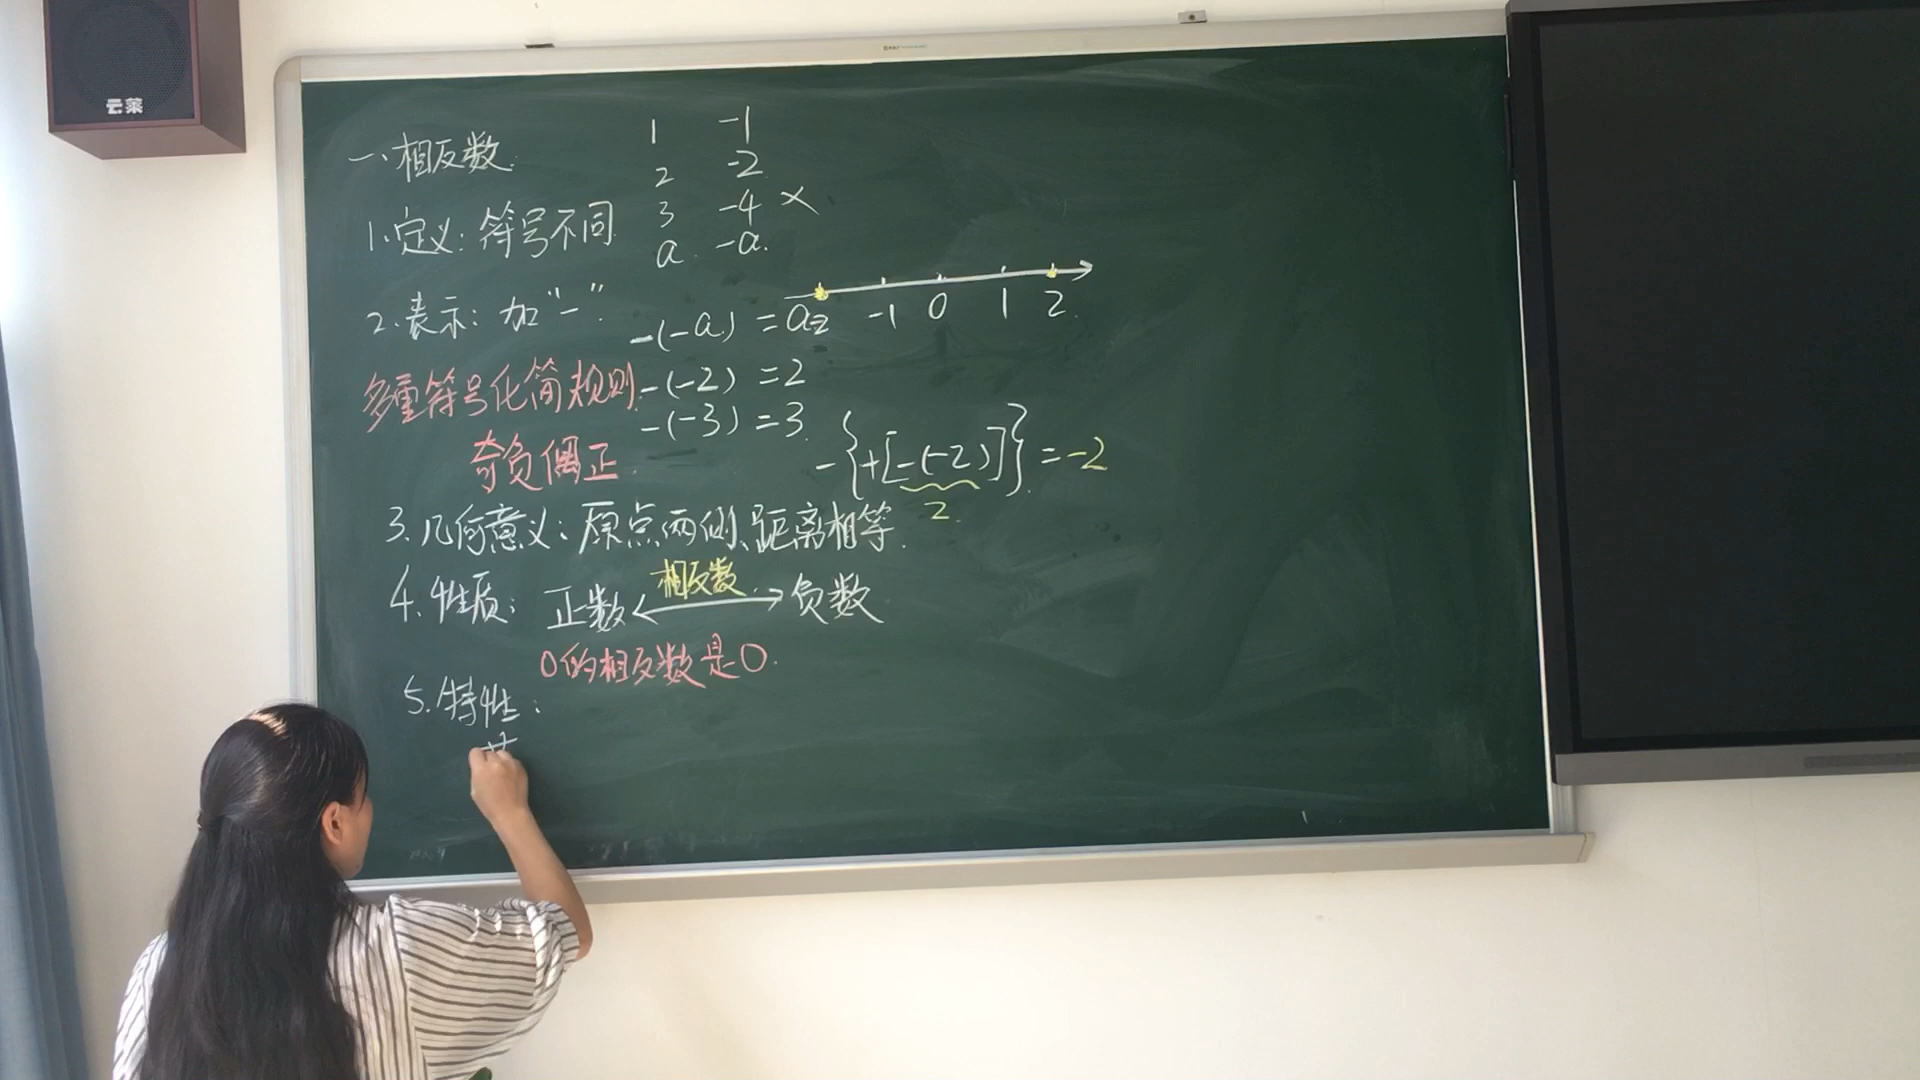 云莱
一、相反数.
1 -1
2 -2
1.定义:符号不同. 3 -4 ×
a. -a.
2.表示:加"-".
-(-a) = a
-2 -1 0 1 2.
多重符号化简规则 -(-2) = 2
-(-3) = 3.
奇负偶正.
-{+[-(-2)]}=-2
2.
3.几何意义:原点两侧、距离相等.
4.性质:正数 相反数. 负数
0的相反数是0.
5.特性: